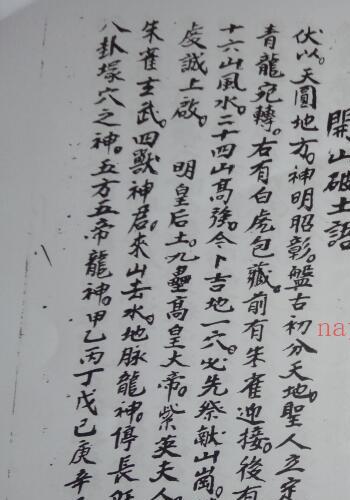 開山破土語
伏以。天圓地方。神明昭彰。盤古初分天地。聖人立
青龍宛轉。右有白虎包藏。前有朱雀迎接。後有
十六山風水。二十四山高強。今卜吉地一穴。必先祭獻山崗。
虔誠上啟。 明皇后土。九壘高皇大帝。紫英夫人
朱雀玄武。四獸神君。來山去水。地脉龍神。傳長
八卦塚穴之神。五方五帝龍神。甲乙丙丁戊己庚辛
na